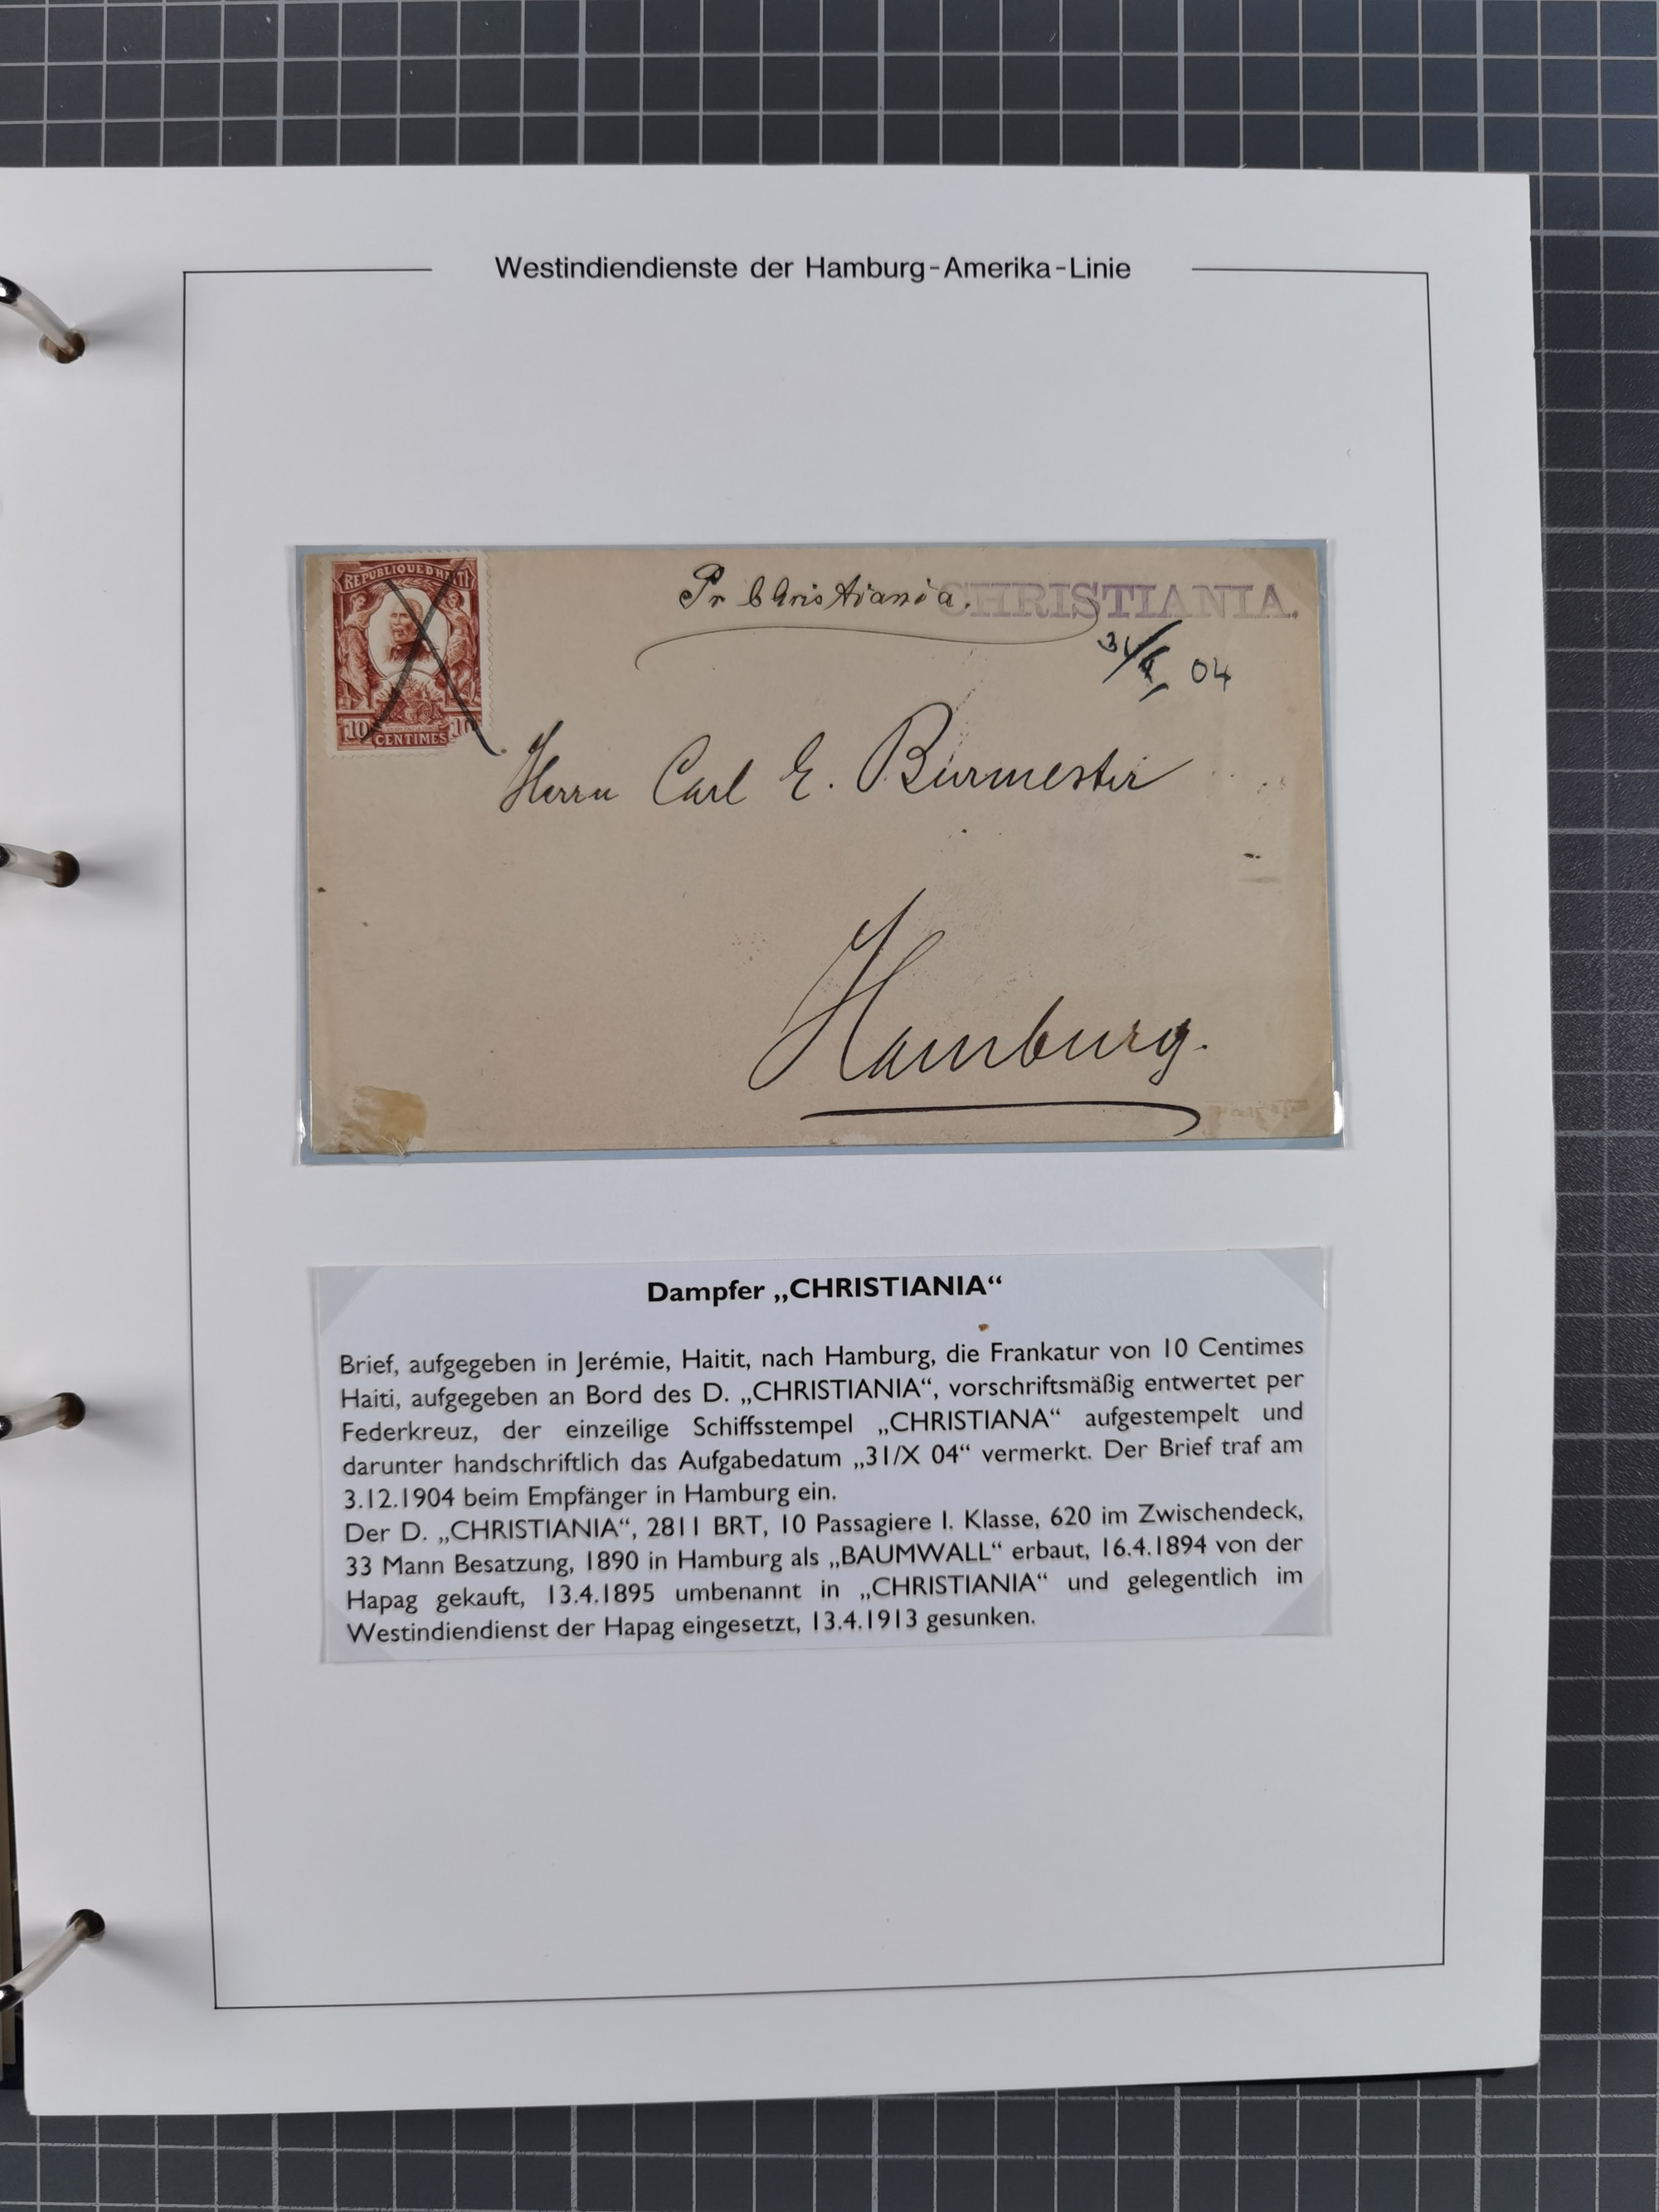 Westindiendienste der Hamburg-Amerika-Linie
REPUBLIQUE D'HAITI
10 10
CENTIMES
Pr Christiania. CHRISTIANIA.
31/X 04
Herrn Carl E. Burmester
Hamburg.
Dampfer „CHRISTIANIA“
Brief, aufgegeben in Jerémie, Haitit, nach Hamburg, die Frankatur von 10 Centimes
Haiti, aufgegeben an Bord des D. „CHRISTIANIA“, vorschriftsmäßig entwertet per
Federkreuz, der einzeilige Schiffsstempel „CHRISTIANA“ aufgestempelt und
darunter handschriftlich das Aufgabedatum „31/X 04“ vermerkt. Der Brief traf am
3.12.1904 beim Empfänger in Hamburg ein.
Der D. „CHRISTIANIA“, 2811 BRT, 10 Passagiere I. Klasse, 620 im Zwischendeck,
33 Mann Besatzung, 1890 in Hamburg als „BAUMWALL“ erbaut, 16.4.1894 von der
Hapag gekauft, 13.4.1895 umbenannt in „CHRISTIANIA“ und gelegentlich im
Westindiendienst der Hapag eingesetzt, 13.4.1913 gesunken.